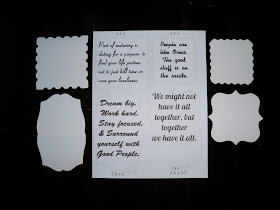 Part of maturing is
dating for a purpose; to
find your life partner
not to just kill time or
cure your loneliness.
People are
like Oreos.
The good
stuff is on
the inside.
Dream big,
Work hard,
Stay focused,
& Surround
yourself with
Good People.
We might not
have it all
together, but
together
we have it all.